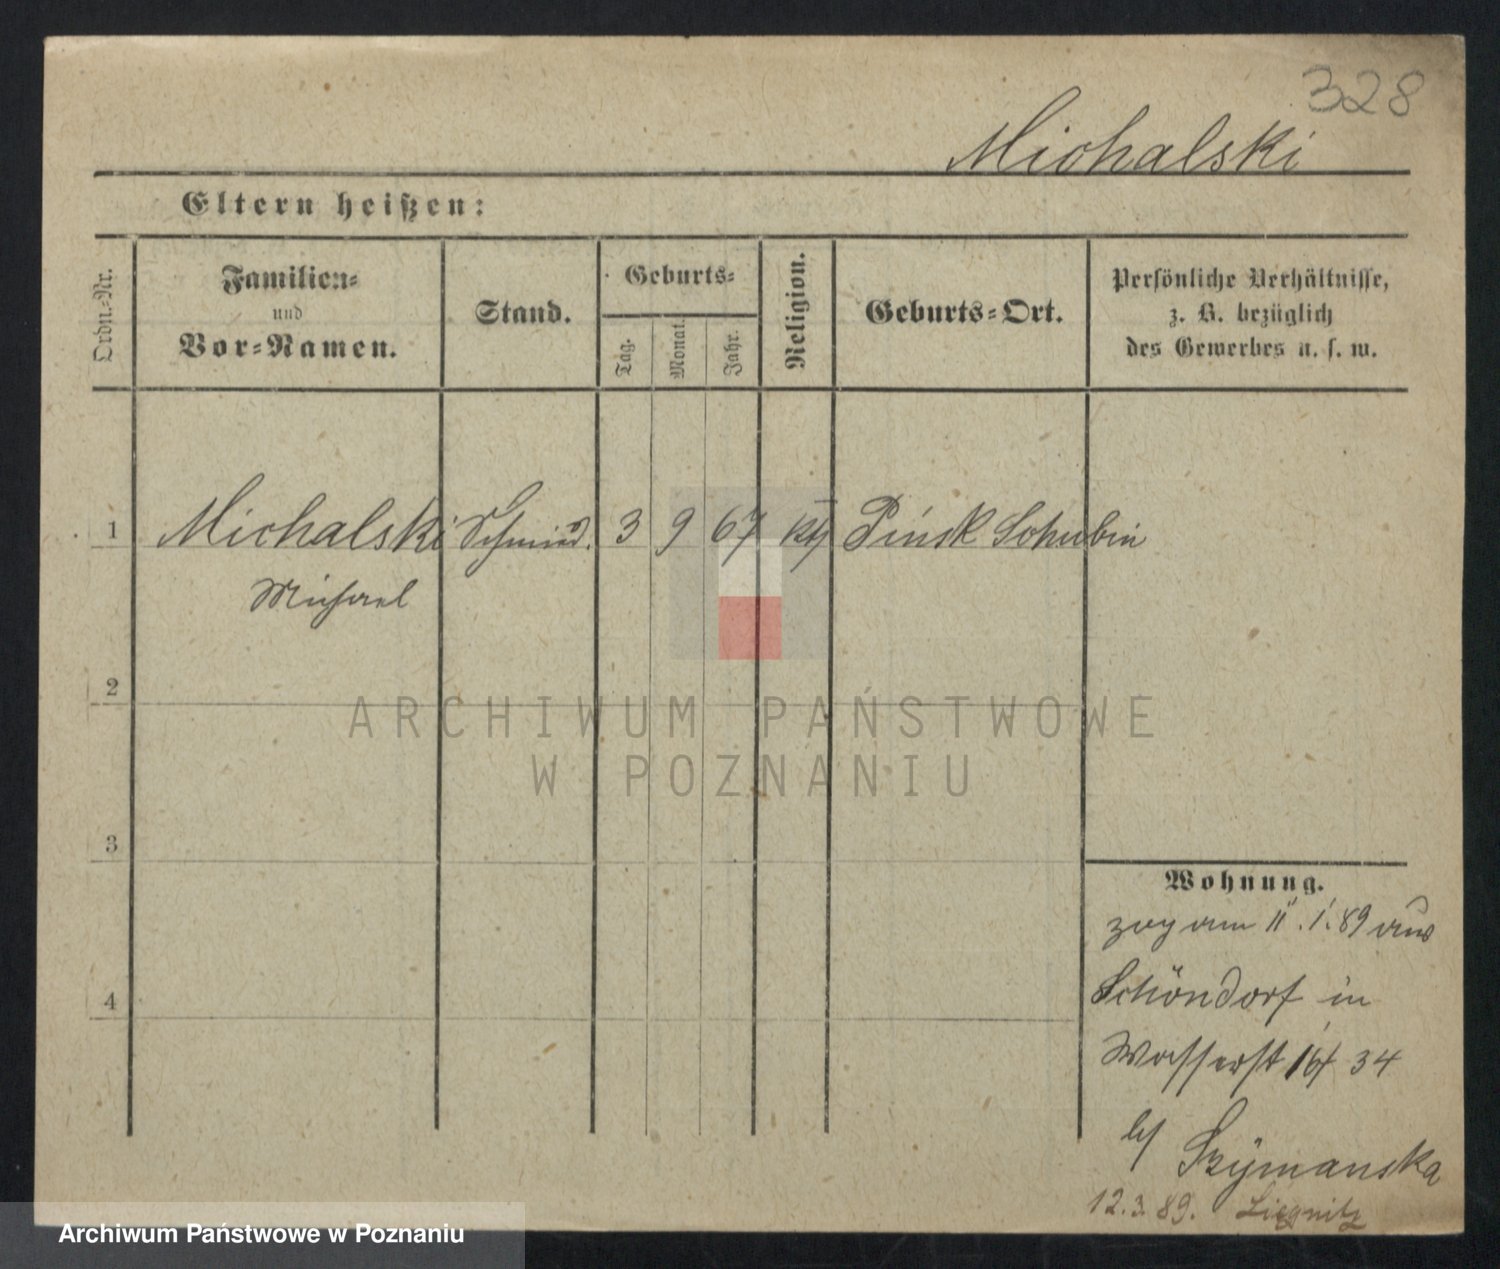 328
Michalski
Eltern heißen:
Ordn.-Nr.
Familien-
und
Vor-Namen.
Stand.
Geburts-
Tag.
Monat.
Jahr.
Religion.
Geburts-Ort.
Persönliche Verhältnisse,
z. B. bezüglich
des Gewerbes u. s. w.
1 Michalski Schmied. 3 9 67 kth Pinsk Schubin
Michael
2
3
4
Wohnung.
zog am 11. 1. 89 aus
Schöndorf in
Wasserst 16/ 34
b/ Szÿmanska
12.3.89. Liegnitz
ARCHIWUM PAŃSTWOWE
W POZNANIU
Archiwum Państwowe w Poznaniu